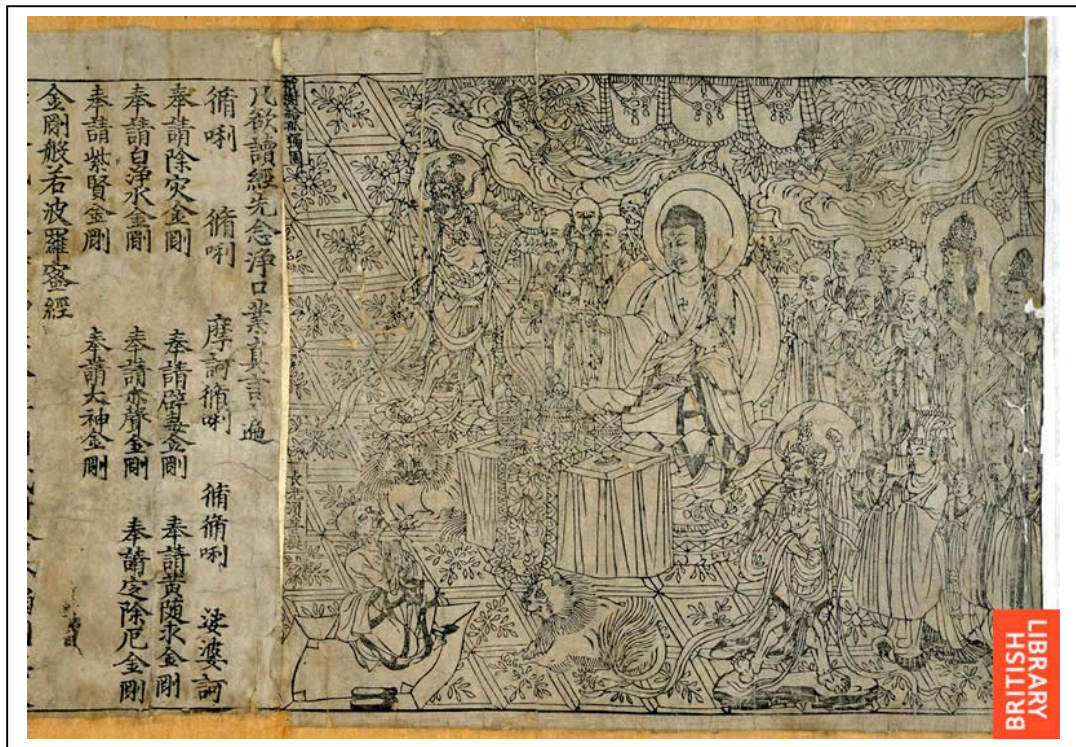 祇樹給孤獨園
長老須菩提
凡欲讀經先念浄口業真言遍
脩唎 脩唎 摩訶脩唎 脩脩唎 娑婆訶
奉請除灾金剛 奉請辟毒金剛 奉請黃随求金剛
奉請白浄水金剛 奉請赤聲金剛 奉請定除厄金剛
奉請紫賢金剛 奉請大神金剛
金剛般若波羅蜜經
BRITISH
LIBRARY